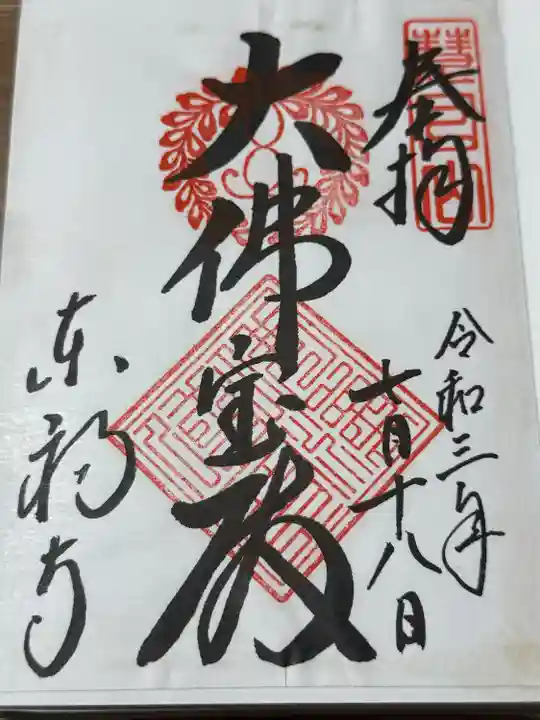 奉拝
令和三年
十月十八日
大佛宝殿
東福寺